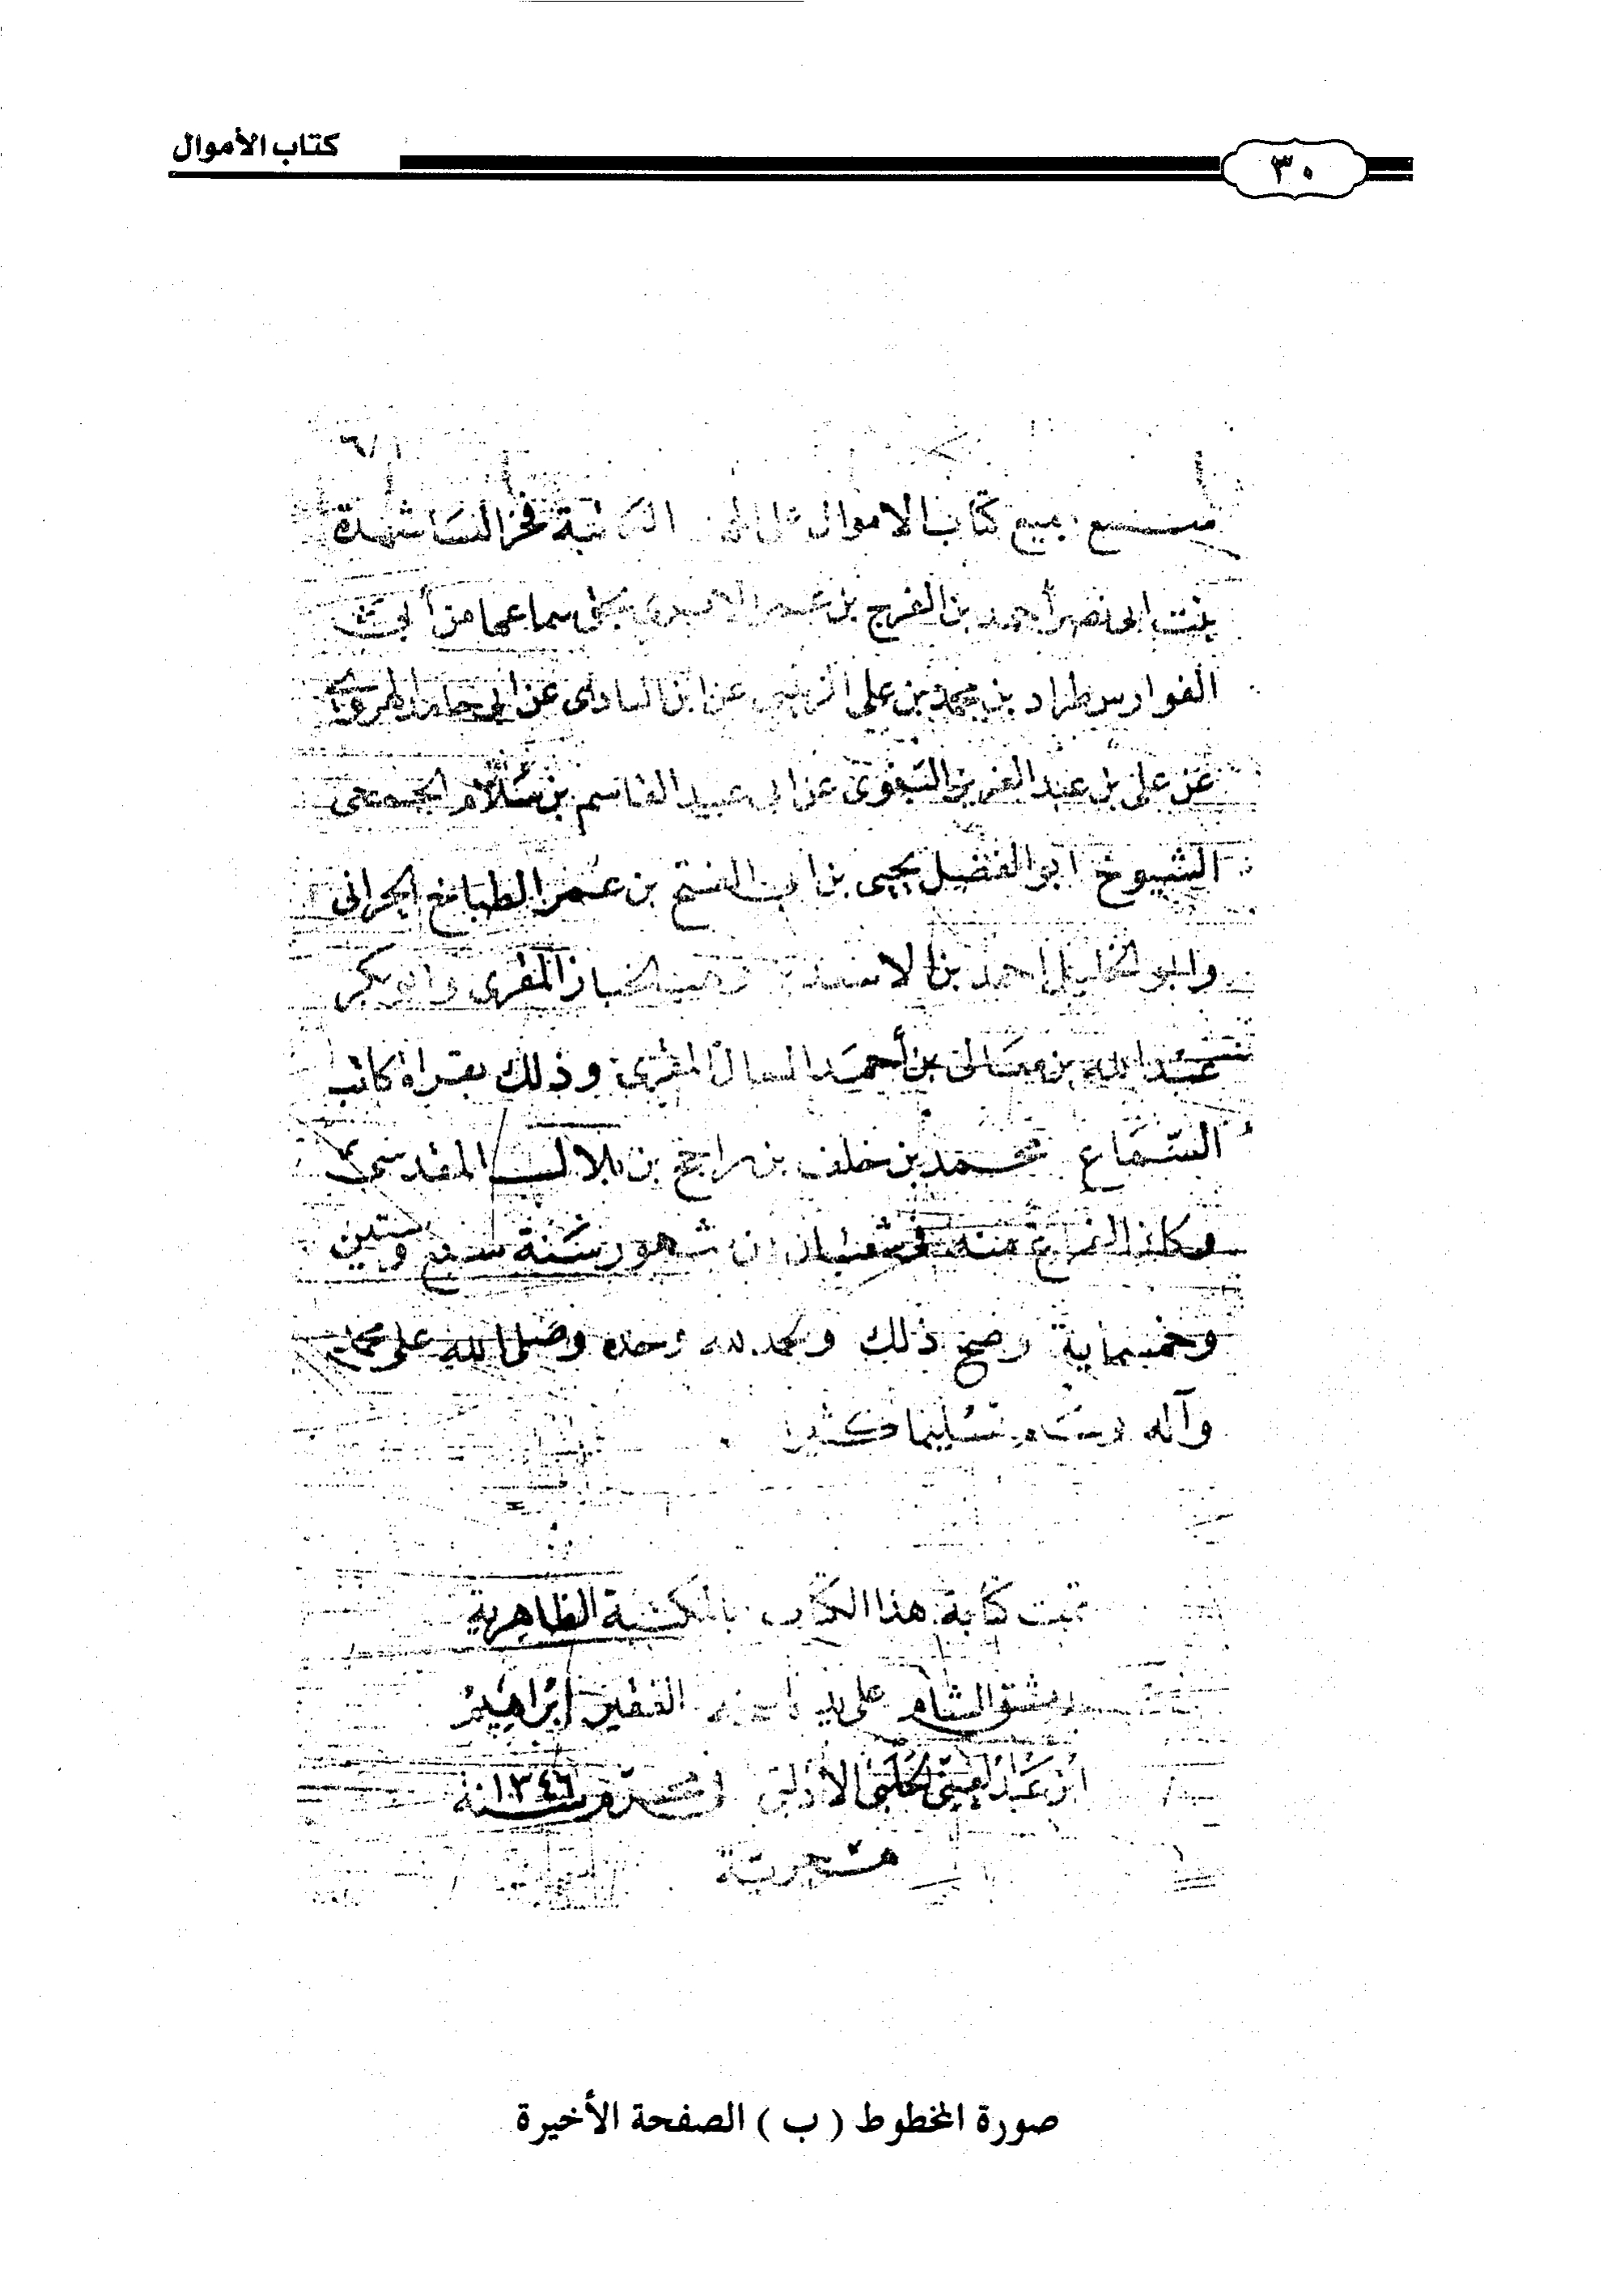 كتاب الأموال
٣٠
سمع جميع كتاب الاموال على الكاتبة فخر النسا شهدة
بنت ابى نصر أحمد بن الفرج بن عمر الابرى بحق سماعها من أبى
الفوارس طراد بن محمد بن على الزينبى عن ابن البادى عن ابى حامد الهروى
عن على بن عبد العزيز البغوى عن ابى عبيد القاسم بن سلّام الجمحى
الشيوخ ابو الفضل يحيى بن ابى الفتح بن عمر الطباخ الحرانى
وابو الخليل احمد بن الاسعد بن وهب الخباز المقرى وابو بكر
عبد الله بن أحمد المقرى وذلك بقراة كاتب
السّماع محمد بن خلف بن راجح بن بلال المقدسى
وكان الفراغ منه فى شعبان من شهور سنة سبع وستين
وخمسماية وصح ذلك والحمد لله وحده وصلى الله على محمد
وآله وسلم تسليما كثيرا
تمت كتابة هذا الكتاب بالمكتبة الظاهرية
بدمشق الشام على يد الفقير ابراهيم
ابن عبد الحلبى الادلبى فى محرّم سنة ١٣٤٦
هجرية
صورة المخطوط ( ب ) الصفحة الأخيرة